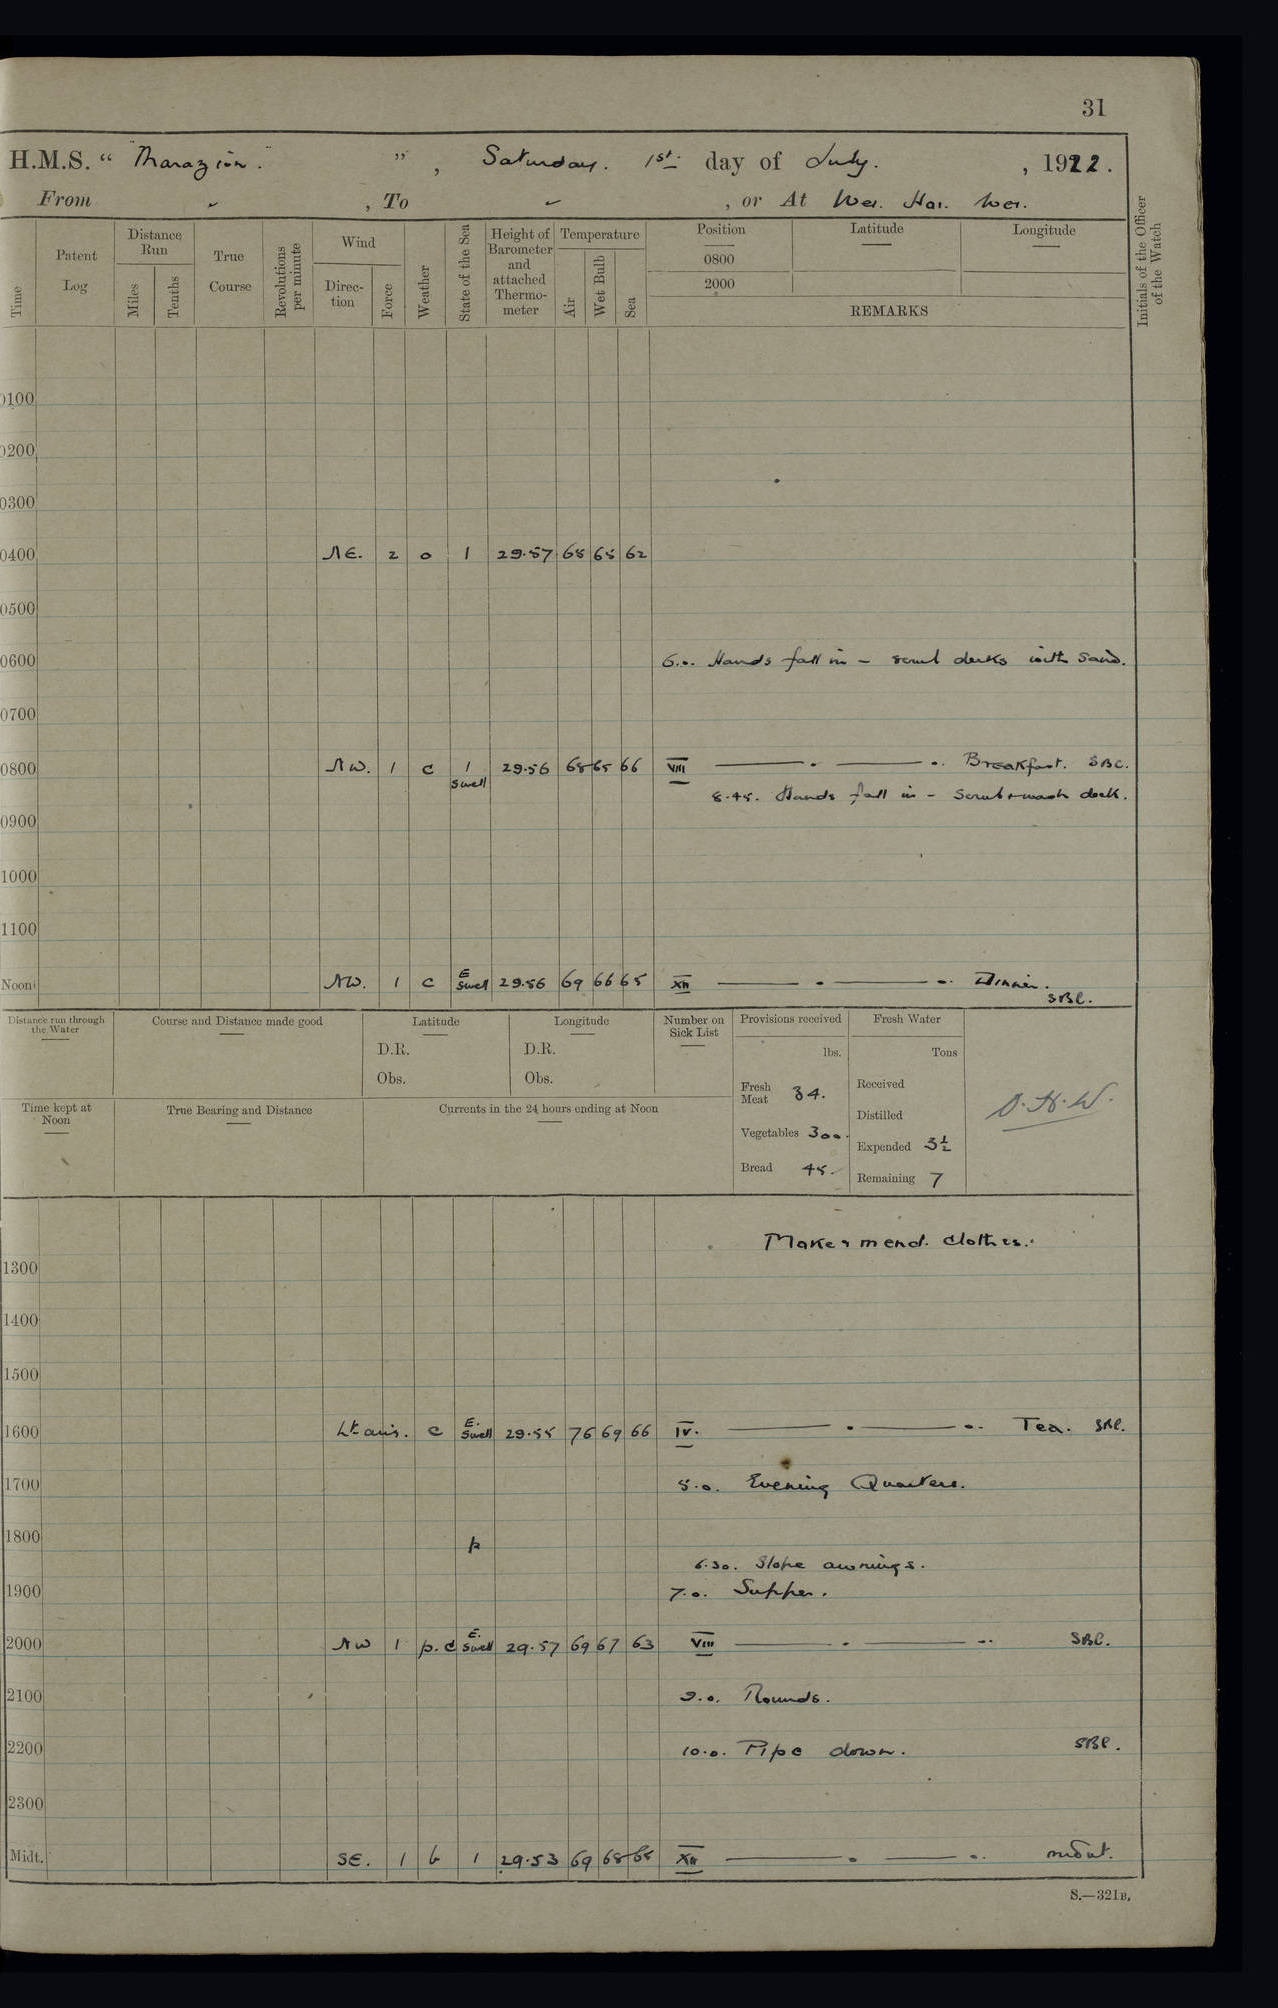 31
H.M.S. "Marazion." , Saturday. 1st day of July. , 1922.
From ✓ , To ✓ , or At Wei. Hai. Wei.
Time
Patent Log
Distance Run
Miles
Tenths
True Course
Revolutions per minute
Wind
Direction
Force
Weather
State of the Sea
Height of Barometer and attached Thermometer
Temperature
Air
Wet Bulb
Sea
Position
0800
2000
Latitude
Longitude
REMARKS
Initials of the Officer of the Watch
0100
0200
0300
0400 NE. 2 o 1 29.57 68 65 62
0500
0600 6.0. Hands fall in – scrub decks with sand.
0700
0800 NW. 1 c 1 swell 29.56 68 65 66 VIII Breakfast. SBC.
8.45. Hands fall in – Scrub & wash deck.
0900
1000
1100
Noon NW. 1 c E swell 29.56 69 66 65 XII Dinner. SBC.
Distance run through the Water
Course and Distance made good
Latitude
D.R.
Obs.
Longitude
D.R.
Obs.
Number on Sick List
Provisions received
lbs.
Fresh Meat 34.
Vegetables 300.
Bread 45.
Fresh Water
Tons
Received
Distilled
Expended 3½
Remaining 7
Time kept at Noon
True Bearing and Distance
Currents in the 24 hours ending at Noon
Make & mend. clothes.
1300
1400
1500
1600 Lt airs. c E. Swell 29.55 76 69 66 IV. Tea. SBC.
1700 5.0. Evening Quarters.
1800 p
6.30. Slope awnings.
1900 7.0. Supper.
2000 NW 1 p.c E. Swell 29.57 69 67 63 VIII SBC.
2100 9.0. Rounds.
2200 10.0. Pipe down. SBC.
2300
Midt. SE. 1 b 1 29.53 69 68 65 XII
S.—321B.